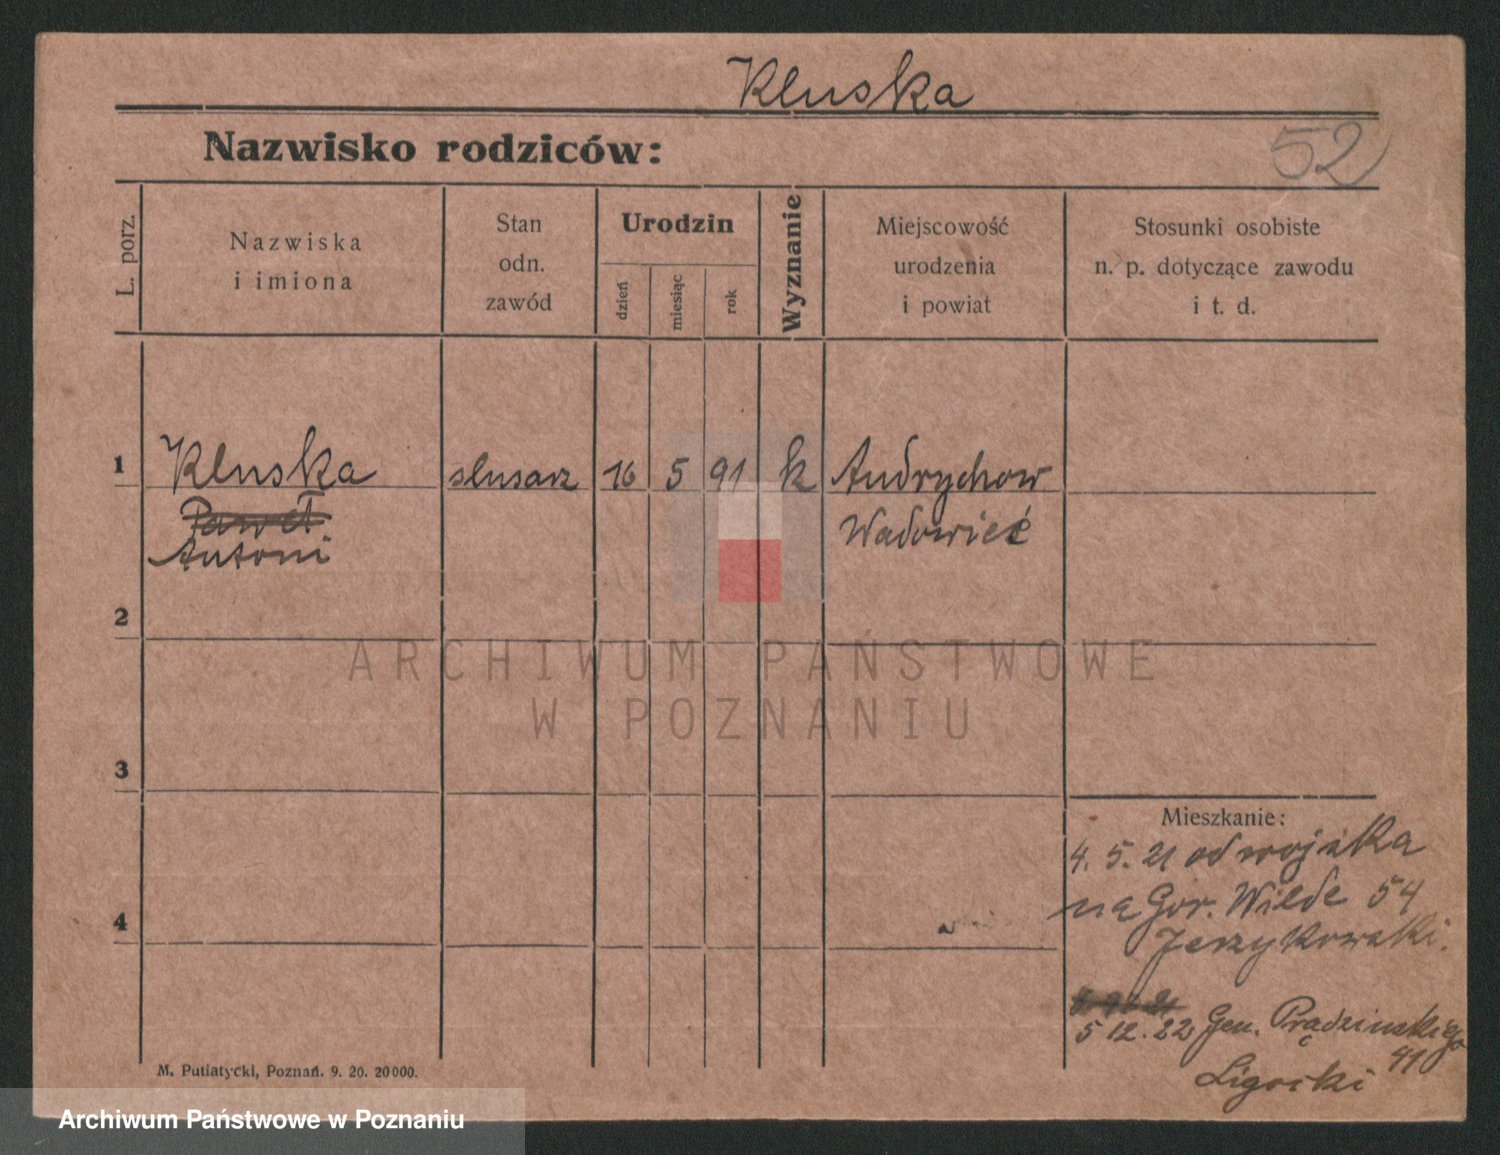 Kluska
Nazwisko rodziców:
52
L. porz.
Nazwiska
i imiona
Stan
odn.
zawód
Urodzin
dzień
miesiąc
rok
Wyznanie
Miejscowość
urodzenia
i powiat
Stosunki osobiste
n. p. dotyczące zawodu
i t. d.
1
Kluska
slusarz
16
5
91
k
Andrychow
Paweł
Wadowice
Antoni
2
ARCHIWUM PAŃSTWOWE
W POZNANIU
3
Mieszkanie:
4. 5. 21 od wojska
na Gór. Wilde 54
4
Jerzykowski.
5 12. 22 Gen. Prądzinskiego
41
Ligocki
M. Putiatycki, Poznań. 9. 20. 20000.
Archiwum Państwowe w Poznaniu